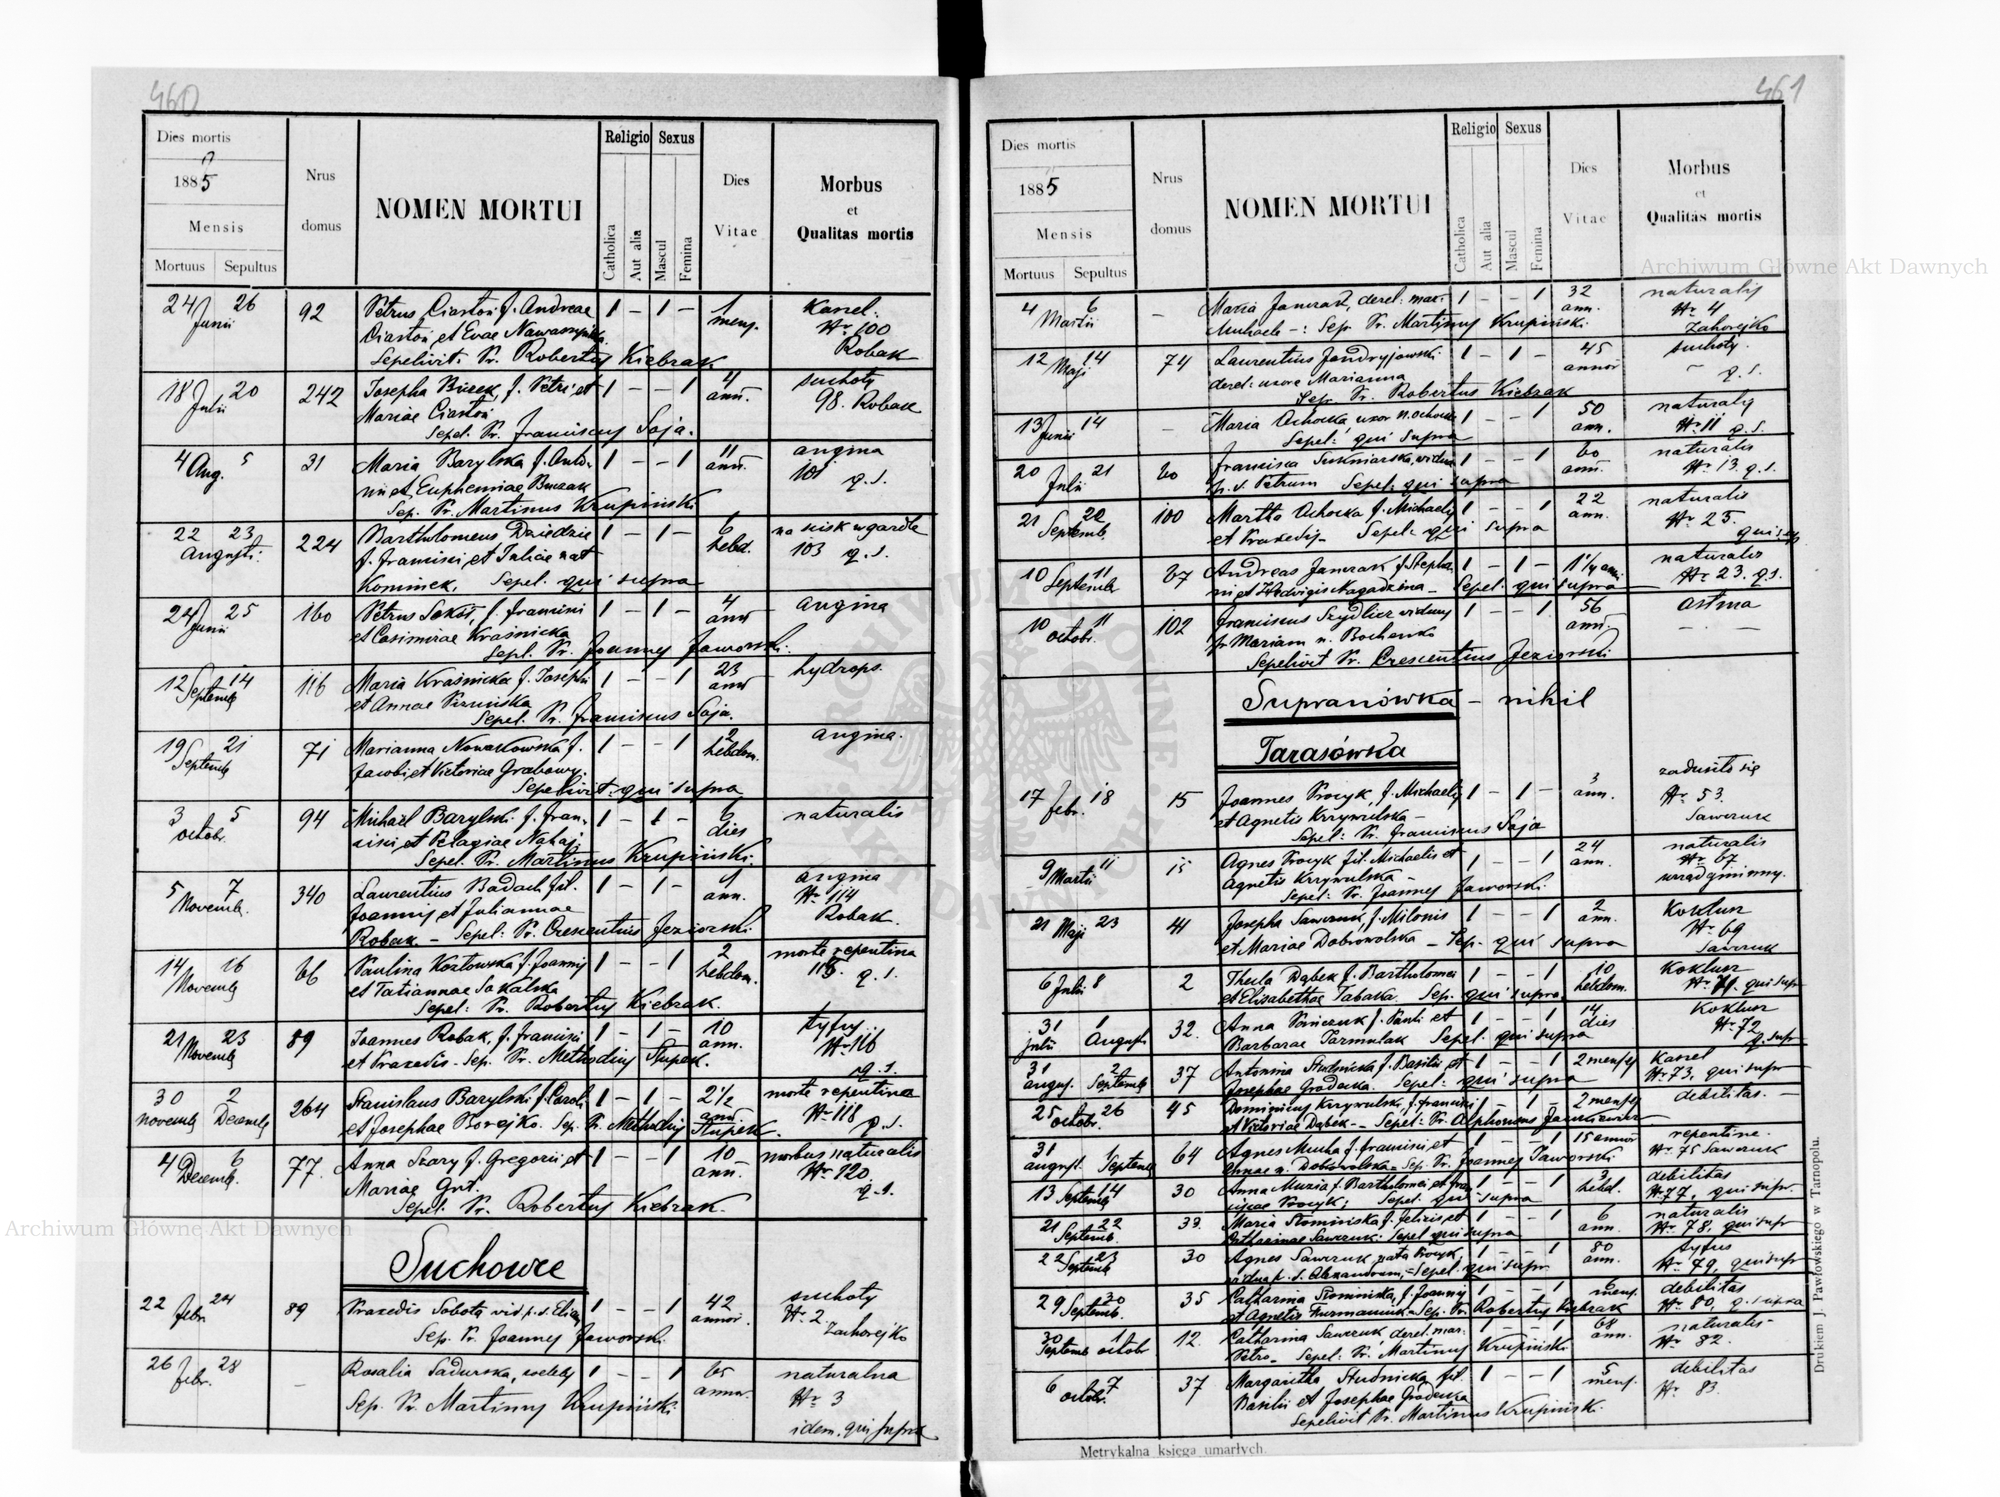 460
Dies mortis
1885
Mensis
Mortuus Sepultus
Nrus domus
NOMEN MORTUI
Religio
Catholica
Aut alia
Sexus
Mascul
Femina
Dies Vitae
Morbus
et
Qualitas mortis
24 26 92 Petrus Ciastoń f. Andreae 1 - 1 - 1 Karzel.
Junii Ciastoń et Evae
mens. Nr 100
Sepelivit Pr. Robertus Kiebzak Robak
18 20 242 Josepha Burek, f. Petri et 1 - - 1 4 suchoty
Julii Mariae Ciastoń ann. 98. Robak
Sepel. Pr. Franciscus Soja.
4 Aug. 5 31 Maria Barylska f. Anto- 1 - - 1 11 angina
nii et Euphemiae Burzak ann. 101 q. s.
Sep. Pr. Martinus Krupiński
22 23 224 Bartholomeus Dziedzic 1 - 1 - 6 na ścisk w gardle
Augusti: f. Francisci et Juliae nat. hebd. 103 q. s.
Kominek. Sepel. qui supra
24 25 160 Petrus Sokoł, f. Francisci 1 - 1 - 4 angina
Junii et Casimirae Kraśnicka ann.
Sepl. Pr. Joannes Jaworski.
12 14 116 Maria Kraśnicka f. Josephi 1 - - 1 23 hydrops.
Septemb et Annae ann.
Sepel. Pr. Franciscus Soja.
19 21 71 Marianna Nowakowska f. 1 - - 1 2 angina.
Septemb Jacobi et Victoriae hebdom.
Sepelivit qui supra
3 5 94 Michaël Barylski f. Fran- 1 - 1 - 6 naturalis
octobr. cisci et Pelagiae Nahaj. dies
Sepel. Pr. Martinus Krupiński.
5 7 340 Laurentius Badach fil. 1 - 1 - 1 angina
Novemb. Joannis et Juliannae ann. Nr 114
Robak - Sepel: Pr. Crescentius Jeziorski Robak.
14 16 66 Paulina Kozłowska f. Joannis 1 - - 1 2 morte repentina
Novemb et Tatiannae Sakalska hebdom. 115. q. s.
Sepel: Pr. Robertus Kiebzak.
21 23 89 Joannes Robak, f. Francisci 1 - 1 - 10 tyfus
Novemb et Praxedis - Sep. Pr. Methodius Stupek. ann. Nr 116
q. s.
30 2 264 Stanislaus Barylski f. Caroli 1 - 1 - 2 1/2 morte repentina
novemb Decemb et Josephae Borejko. Sep. Pr. Methodius Stupek. ann. Nr 118
q. s.
4 6 77. Anna Szary f. Gregorii et 1 - - 1 10 morbus naturalis
Decemb. Mariae Gut. ann. Nr 120
Sepel. Pr. Robertus Kiebzak. q. s.
Suchowce
22 24 89 Praxedis Sobota vid. p. d. Eliam 1 - - 1 42 suchoty
febr. Sep. Pr. Joannes Jaworski annor. Nr 2
Zahorejko
26 28 - Rosalia Sadurska, 1 - - 1 65 naturalna
febr. Sep. Pr. Martinus Krupiński annor. Nr 3
idem. qui supra
461
Dies mortis
1885
Mensis
Mortuus Sepultus
Nrus domus
NOMEN MORTUI
Religio
Catholica
Aut alia
Sexus
Mascul
Femina
Dies Vitae
Morbus
et
Qualitas mortis
4 6 - Maria Janczak, derel: mar. 1 - - 1 32 naturalis
Martii Michaele -: Sep. Pr. Martinus Krupiński. ann. Nr 4
Zahorejko
12 14 74 Laurentius Jendryjowski 1 - 1 - 45 suchoty.
Maji derel: uxore Marianna annor - q. s.
Sep. Pr. Robertus Kiebzak
13 14 - Maria Ochocka uxor N. Ochocki 1 - - 1 50 naturalis
Junii Sepel: qui supra ann. Nr 11 q. s.
20 21 60 Francisca Sukniarska, vidua 1 - - 1 60 naturalis
Julii p. d. Petrum Sepel: qui supra ann. Nr 13. q. s.
21 22 100 Martha Ochocka f. Michaelis 1 - - 1 22 naturalis
Septemb. et Praxedis - Sepel: qui supra ann. Nr 25.
qui sup
10 11 67 Andreas Janczak f. Stepha- 1 - 1 - 1 1/4 anni naturalis
Septemb ni et Hedvigis Nagadzina - Sepel: qui supra Nr 23. q. s.
10 11 102 Franciscus Szydlicz viduus 1 - - 1 56 astma
octobr. p. Mariam n. Bochenko ann. - -
Sepelivit Pr. Crescentius Jeziorski
Supranówka - nihil
Tarasówka
17 18 15 Joannes Procyk, f. Michaelis 1 - 1 - 3 zadusiło się
febr. et Agnetis Krzywulska - ann. Nr 53.
Sepel: Pr. Franciscus Soja Sawczuk
9 11 15 Agnes Procyk fil. Michaelis et 1 - - 1 24 naturalis
Martii Agnetis Krzywulska - ann. Nr 67
Sepel: Pr. Joannes Jaworski. urząd gminny.
21 23 41 Josepha Sawczuk, f. Milonis 1 - - 1 2 Koklusz
Maji et Mariae Dobrowolska - Sep. qui supra ann. Nr 69
Sawczuk
6 8 2 Thecla Dąbek f. Bartholomei 1 - - 1 10 Koklusz
Julii et Elisabethae Tabaka. Sep. qui supra hebdom. Nr 71. qui supr
31 1 32. Anna f. Pauli et 1 - - 1 14 Koklusz
julii Augusti Barbarae Tarmulak Sepel. qui supra dies Nr 72
q. supr
31 2 37 Antonina Studnicka f. Basilii et 1 - - 1 2 menses Karzel
august. Septemb Josephae Gradecka. Sepel: qui supra Nr 73. qui supr
25 26 45 Dominicus Krzywulski, f. Francisci 1 - 1 - 2 menses debilitas. -
octobr. et Victoriae Dąbek - Sepel: Pr. Alphonsus Jankiewicz
31 1 64 Agnes Mucha f. Francisci et 1 - - 1 15 annor repentine.
august. Septemb Annae n. Dobrowolska - Sep. Pr. Joannes Jaworski Nr 75 Sawczuk
13 14 30 Anna Muzia f. Bartholomei et Fran- 1 - - 1 3 debilitas
Septemb ciscae Procyk; Sepel. qui supra hebd. Nr 77. qui supr.
21 22 33. Maria Słomińska f. Felicis et 1 - - 1 6 naturalis
Septemb. Catharinae Sawczuk: Sepel qui supra ann. Nr 78. qui supr
22 23 30 Agnes Sawczuk nata Procyk, 1 - - 1 80 tyfus
Septemb vidua p. d. Alexandrum, - Sepel. qui supr. ann. Nr 79. qui supr
29 30 35 Catharina Słomińska, f. Joannis 1 - - 1 6 debilitas
Septemb. et Agnetis Furmaniuk - Sep. Pr. Robertus Kiebzak mens. Nr 80. q. supra
30 1 12. Catharina Sawczuk, derel. mar. 1 - - 1 68 naturalis -
Septemb octob Petro - Sepel: Pr. Martinus Krupiński ann. Nr 82.
6 7 37 Margaritha Studnicka fil. 1 - - 1 5 debilitas
octobr. Basilii et Josephae Gradecka mens. Nr 83.
Sepelivit Pr. Martinus Krupińsk.
Metrykalna księga umarłych.
Drukiem J. Pawłowskiego w Tarnopolu.
Archiwum Główne Akt Dawnych
Archiwum Główne Akt Dawnych
ARCHIWUM GŁÓWNE AKT DAWNYCH